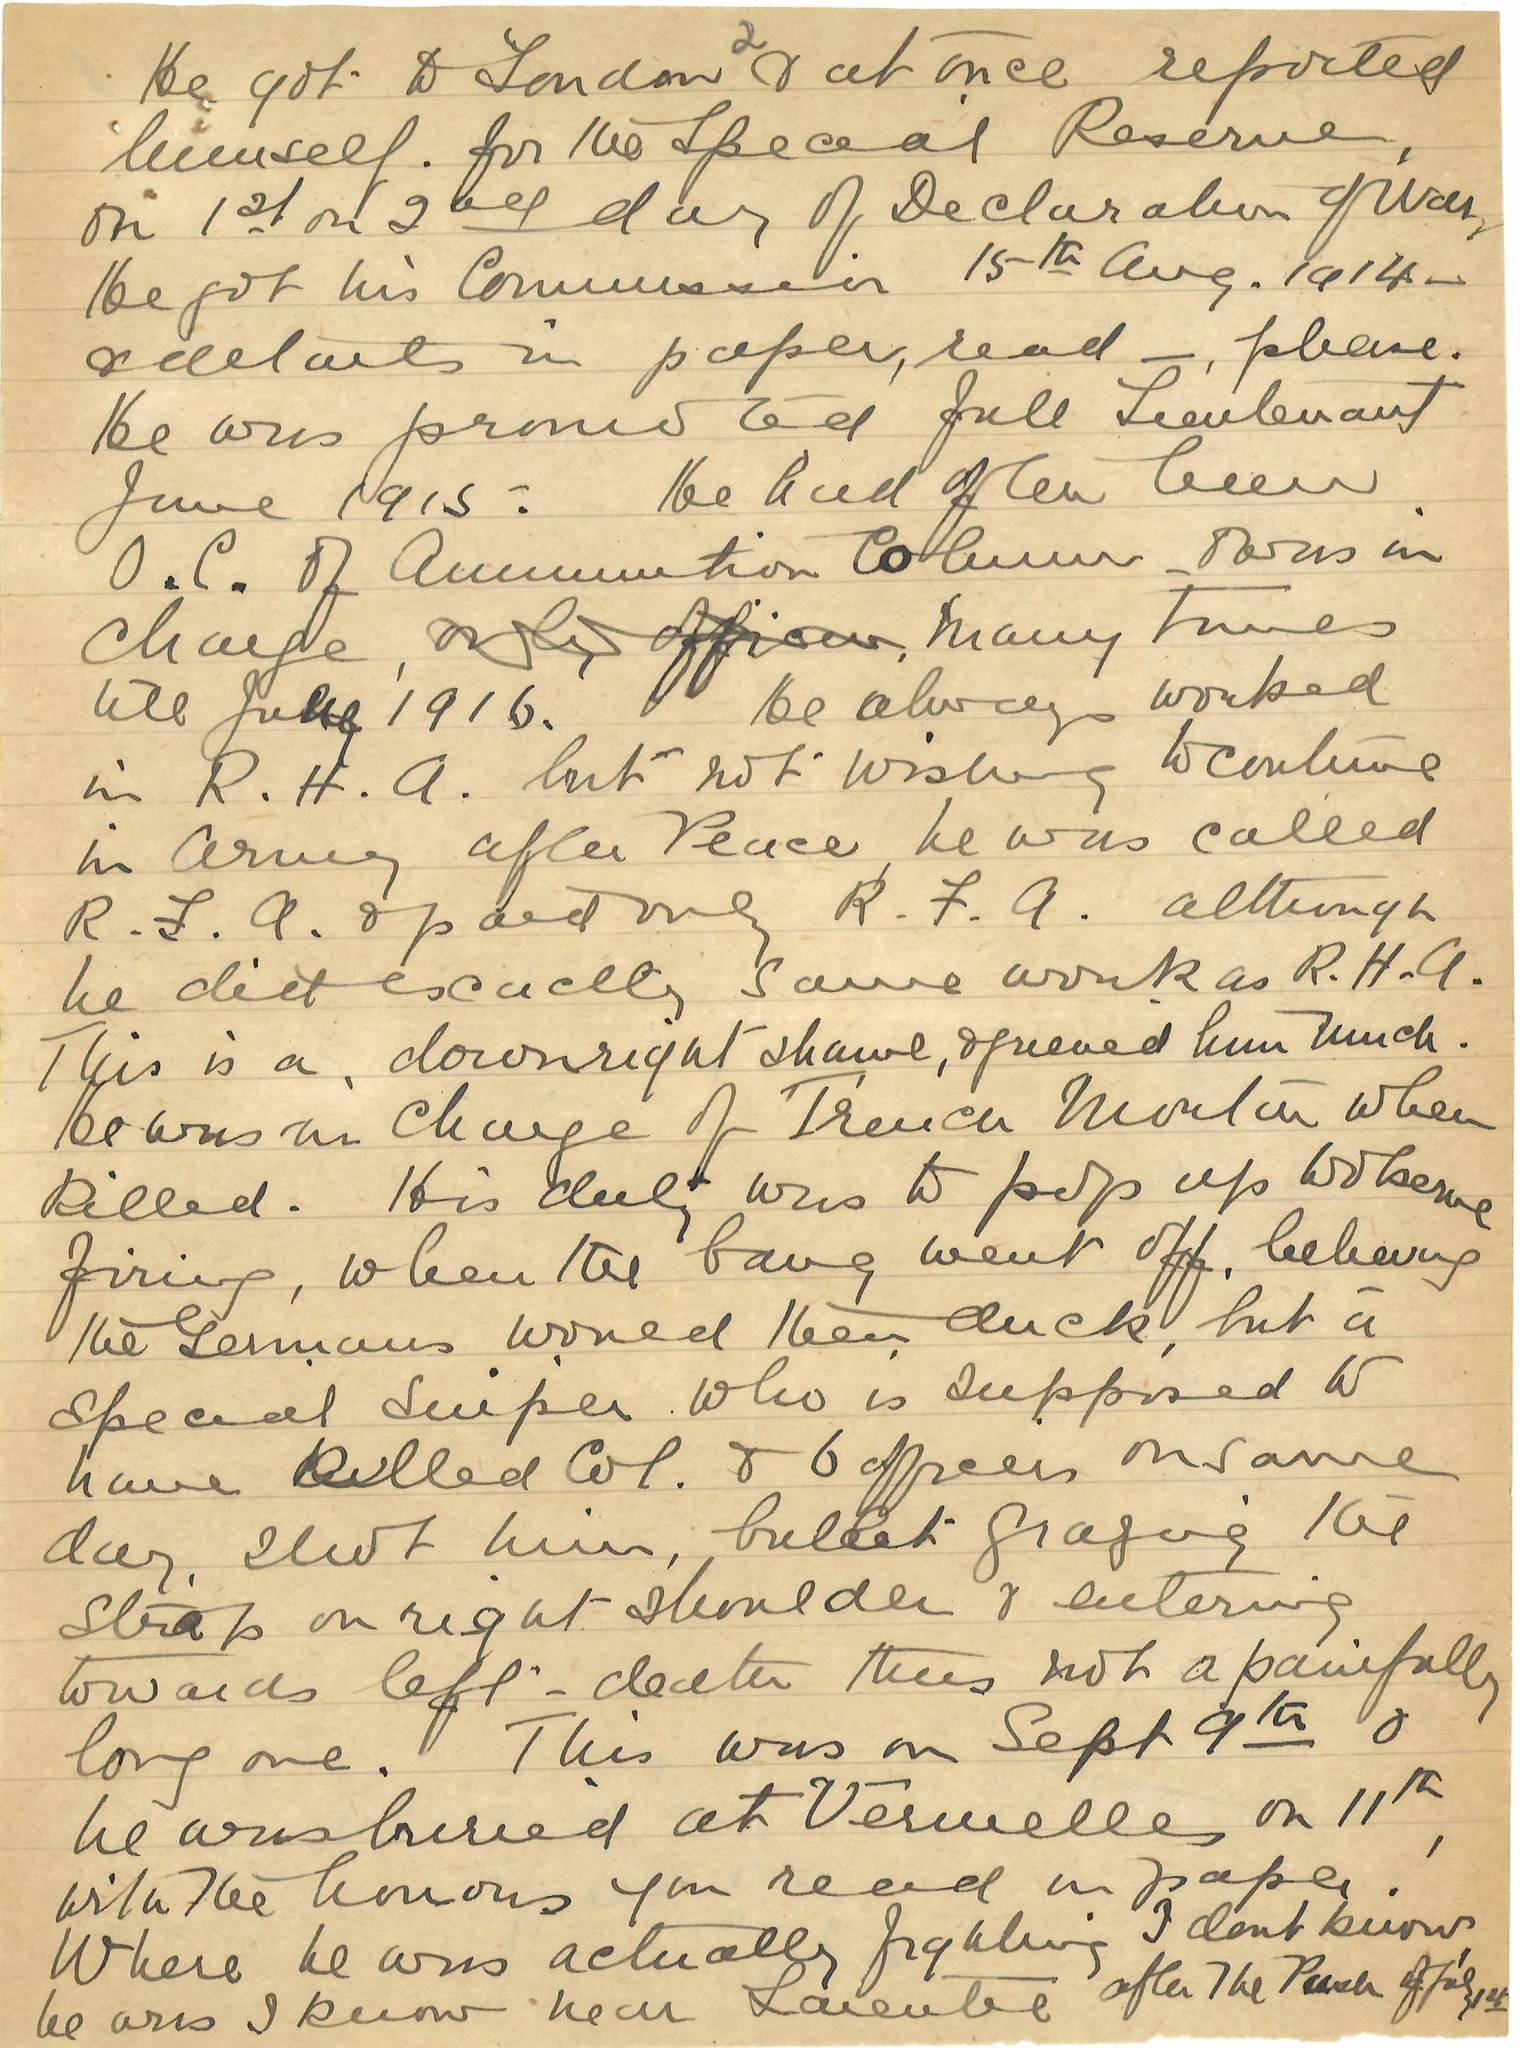 2
He got to London & at once reported
himself. for the Special Reserve,
on 1st or 2nd day of Declaration of War,
He got his Commission 15th Aug. 1914 -
& details in paper, read —, please.
He was promoted full Lieutenant
June 1915 - He had often been
O.C. of Ammunition Column - & was in
charge, only officer, many times
till July 1916. He always worked
in R.H.A. but not wishing to continue
in Army after Peace, he was called
R.F.A. & paid only R.F.A. although
he did exactly same work as R.H.A.
This is a, downright shame, & grieved him much.
He was in charge of Trench Mortar when
Killed. His duty was to pop up to observe
firing, when the bang went off, believing
the Germans would then duck, but a
special sniper who is supposed to
have Killed Col. & 6 officers on same
day, shot him, bullet grazing the
strap on right shoulder & entering
towards left - death thus not a painfully
long one. This was on Sept 9th &
he was buried at Vermelles on 11th,
with the honours you read in paper.
Where he was actually fighting I dont know,
he was I know near Laventie after the Push of July 1st